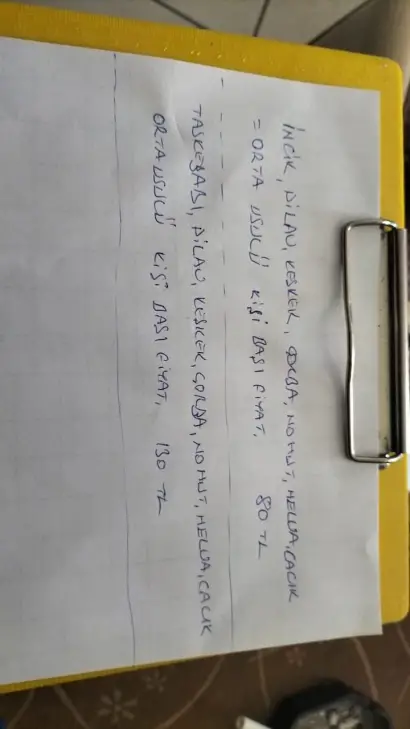 İNCİK, PİLAV, KEŞKEK, ÇORBA, NOHUT, HELVA, CACIK
= ORTA USULÜ KİŞİ BAŞI FİYAT. 80 TL
TASKEBABI, PİLAV, KEŞKEK, ÇORBA, NOHUT, HELVA, CACIK
ORTA USULÜ KİŞİ BAŞI FİYAT. 130 TL